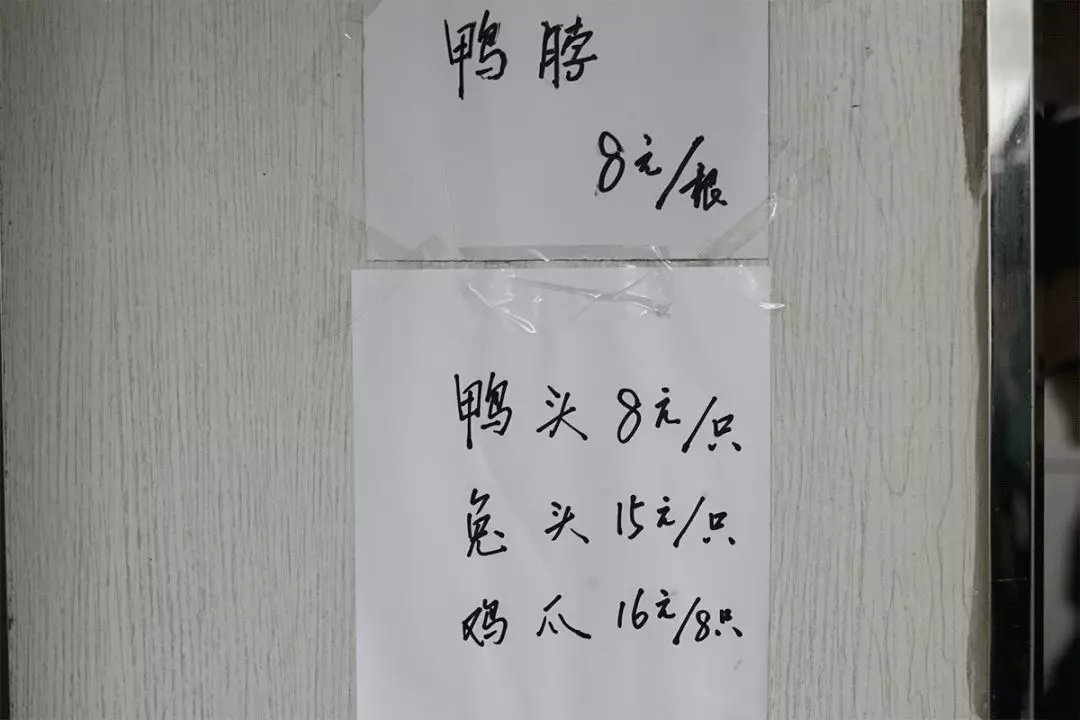 鸭脖
8元/根
鸭头 8元/只
兔头 15元/只
鸡爪 16元/8只